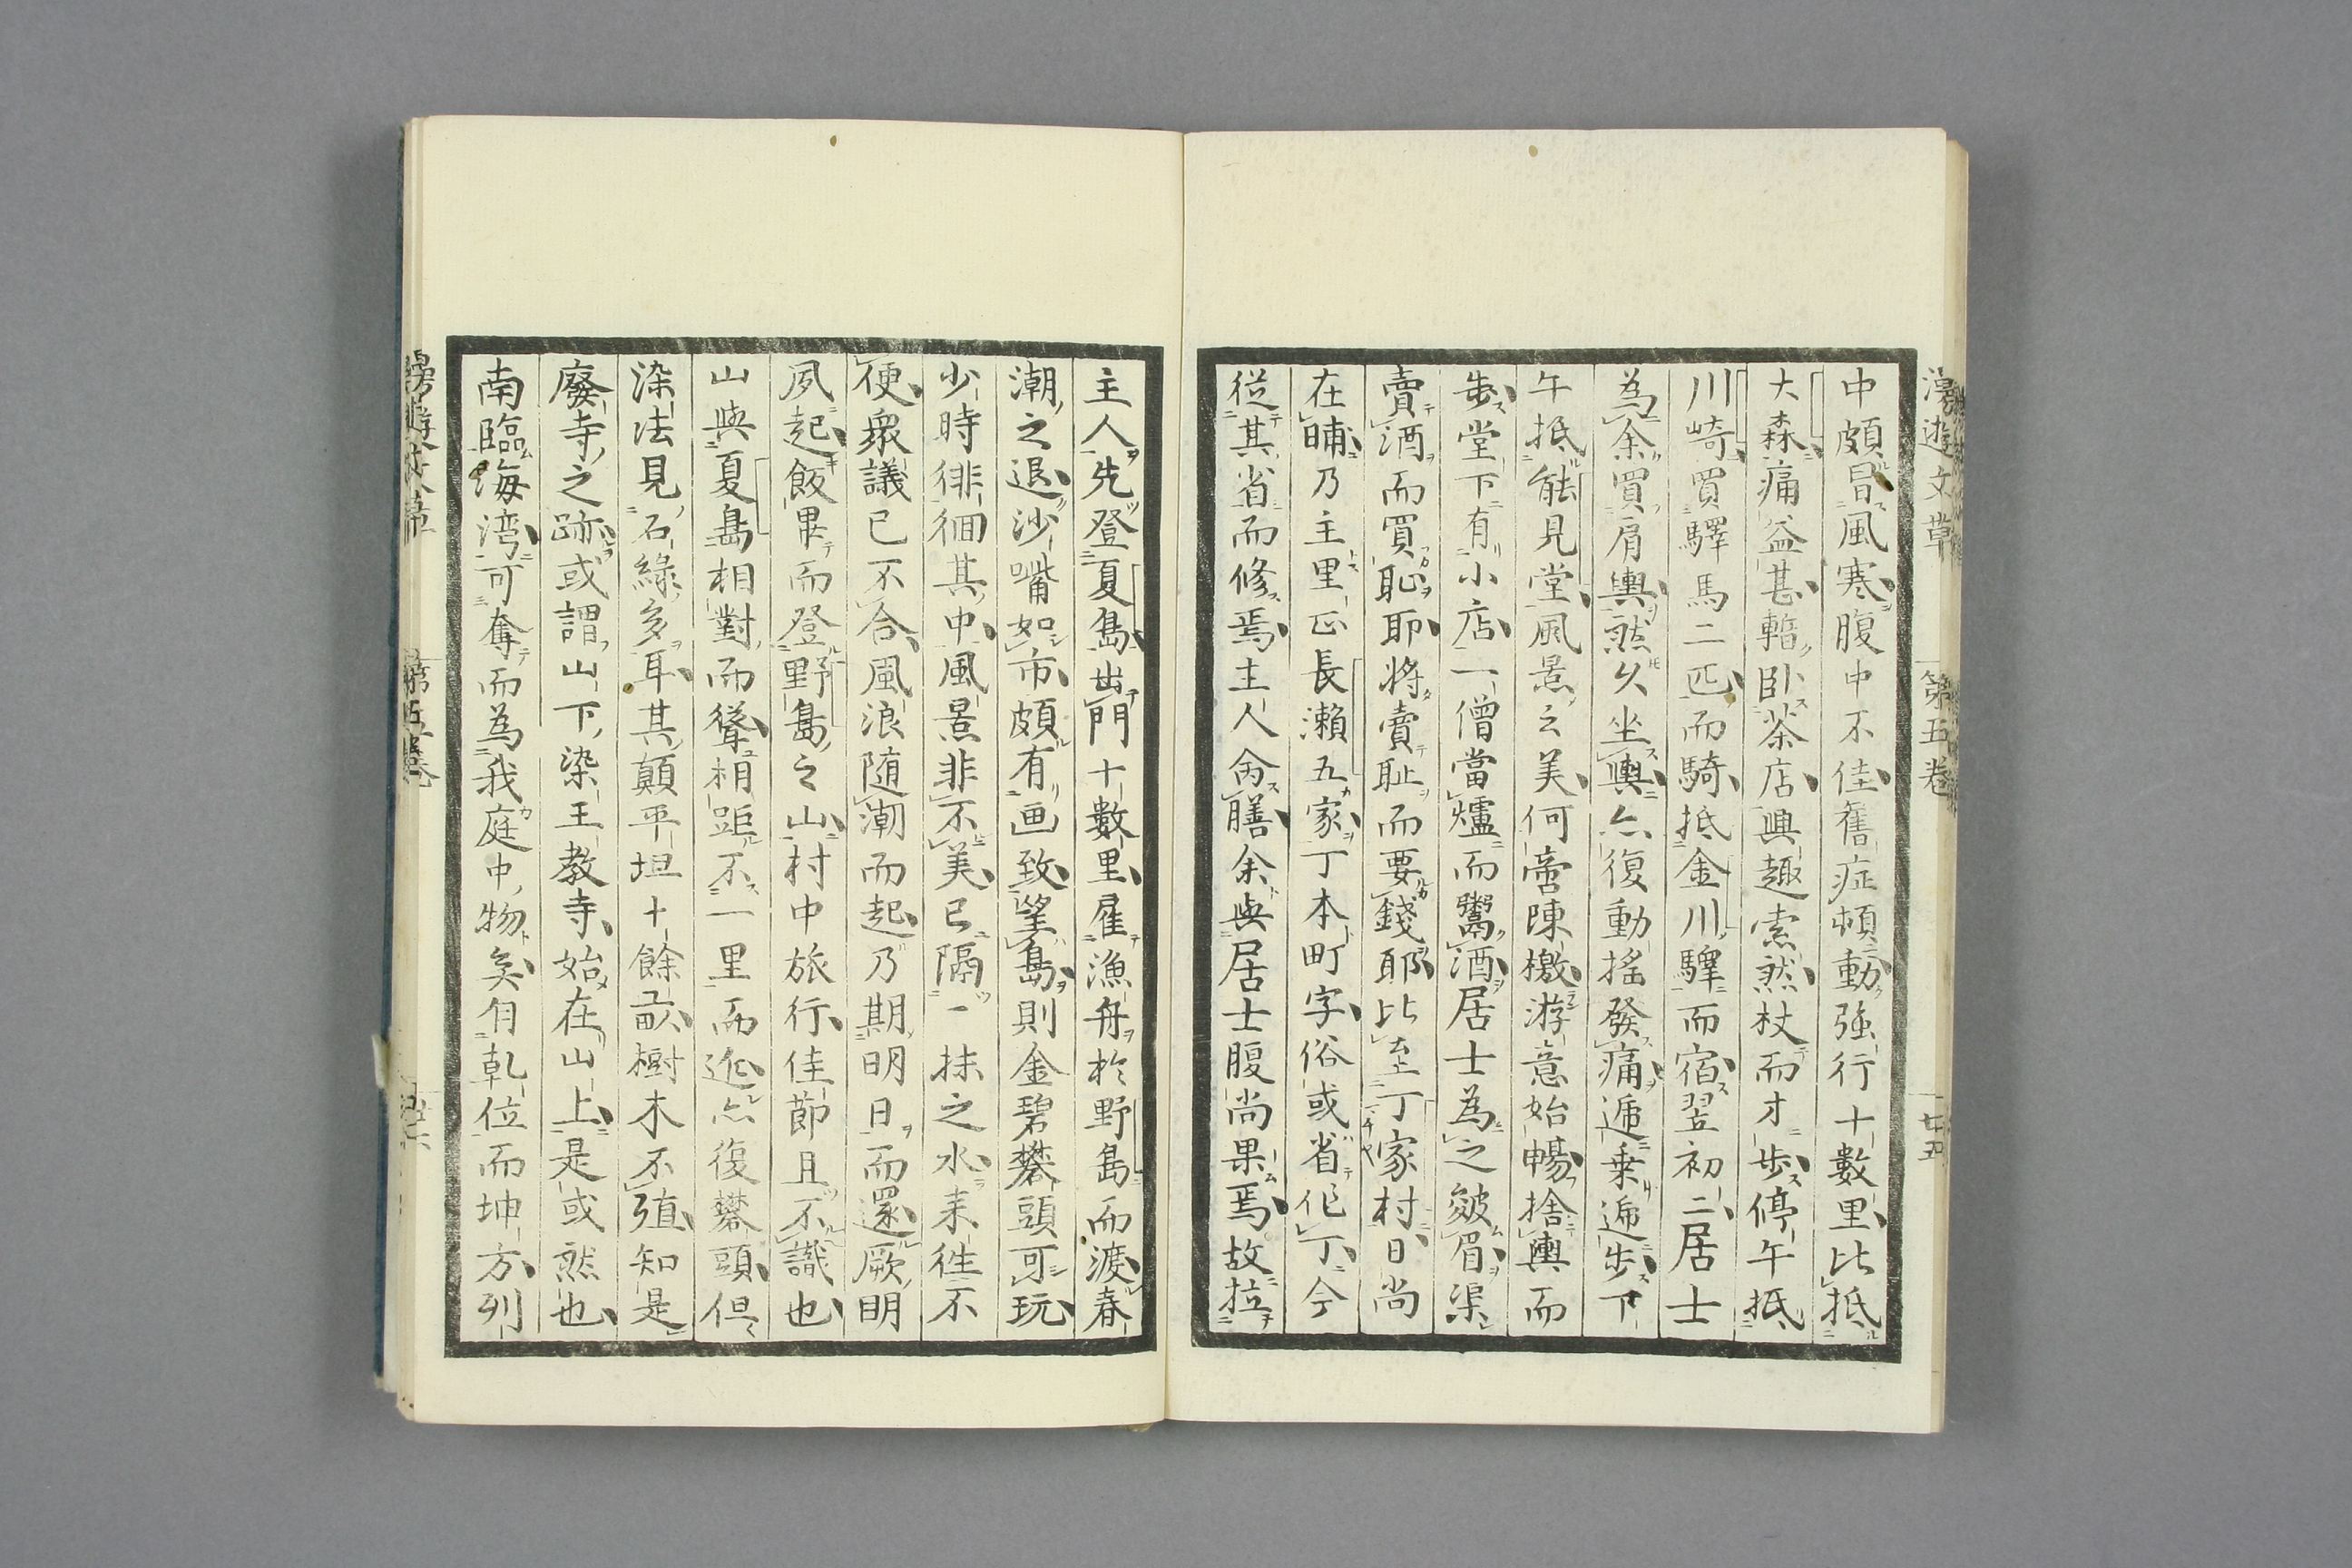 漫遊文草 第五卷 七五
中頗冒風寒腹中不佳舊症頓動強行十數里比抵
大森痛益甚暫臥茶店興趣索然杖而才步停午抵
川崎買驛馬二匹而騎抵金川驛而宿翌初二居士
為余買肩輿然久坐輿亦復動搖發痛遞乗遞步下
午抵能見堂風景之美何啻陳檄游意始暢捨輿而
步堂下有小店一僧當爐而鬻酒居士為之皴眉渠
賣酒而買恥耶將賣恥而要錢耶比至丁家村日尚
在晡乃主里正長瀬五家丁本町字俗或省作丁今
從其省而修焉主人命膳余與居士腹尚果焉故拉
主人先登夏島出門十數里雇漁舟於野島而渡春
潮之退沙嘴如市頗有画致望島則金碧礬頭可玩
少時徘徊其中風景非不美已隔一抹之水来徃不
便衆議已不合風浪随潮而起乃期明日而還厥明
夙起飯畢而登野島之山村中旅行佳節且不識也
山與夏島相對而聳相距不一里而近亦復礬頭但
染法見石綠多耳其顛平坦十餘畝樹木不殖知是
廢寺之跡或謂山下染王教寺始在山上是或然也
南臨海湾可奪而為我庭中物矣自乹位而坤方列
第五卷